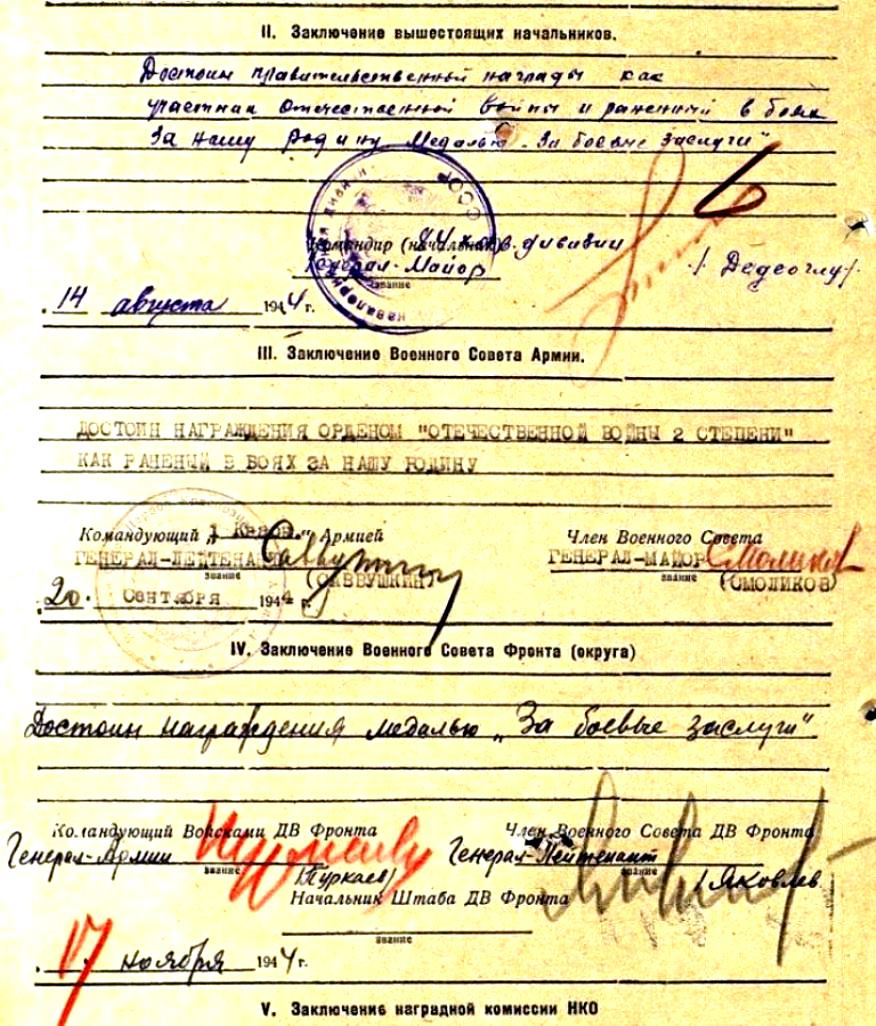 II. Заключение вышестоящих начальников.
Достоин правительственной награды как
участник отечественной войны и раненный в боях
за нашу родину Медалью „За боевые заслуги"
6
Командир (начальник) 84 кав. дивизии
Генерал-Майор
/ Дедеоглу/
звание
14 августа 1944 г.
III. Заключение Военного Совета Армии.
ДОСТОИН НАГРАЖДЕНИЯ ОРДЕНОМ "ОТЕЧЕСТВЕННОЙ ВОЙНЫ 2 СТЕПЕНИ"
КАК РАНЕНЫЙ В БОЯХ ЗА НАШУ РОДИНУ
Командующий „1 Красн." Армией
Член Военного Совета
ГЕНЕРАЛ-ЛЕЙТЕНАНТ
ГЕНЕРАЛ-МАЙОР
звание
звание
(САВВУШКИН)
(СМОЛИКОВ)
20. Сентября 1944 г.
IV. Заключение Военного Совета Фронта (округа)
Достоин награждения медалью „За боевые заслуги"
Командующий Войсками ДВ Фронта
Член Военного Совета ДВ Фронта
Генерал-Армии
Генерал-Лейтенант
звание
звание
(Пуркаев)
(Яковлев
Начальник Штаба ДВ Фронта
звание
17 ноября 1944 г.
V. Заключение наградной комиссии НКО